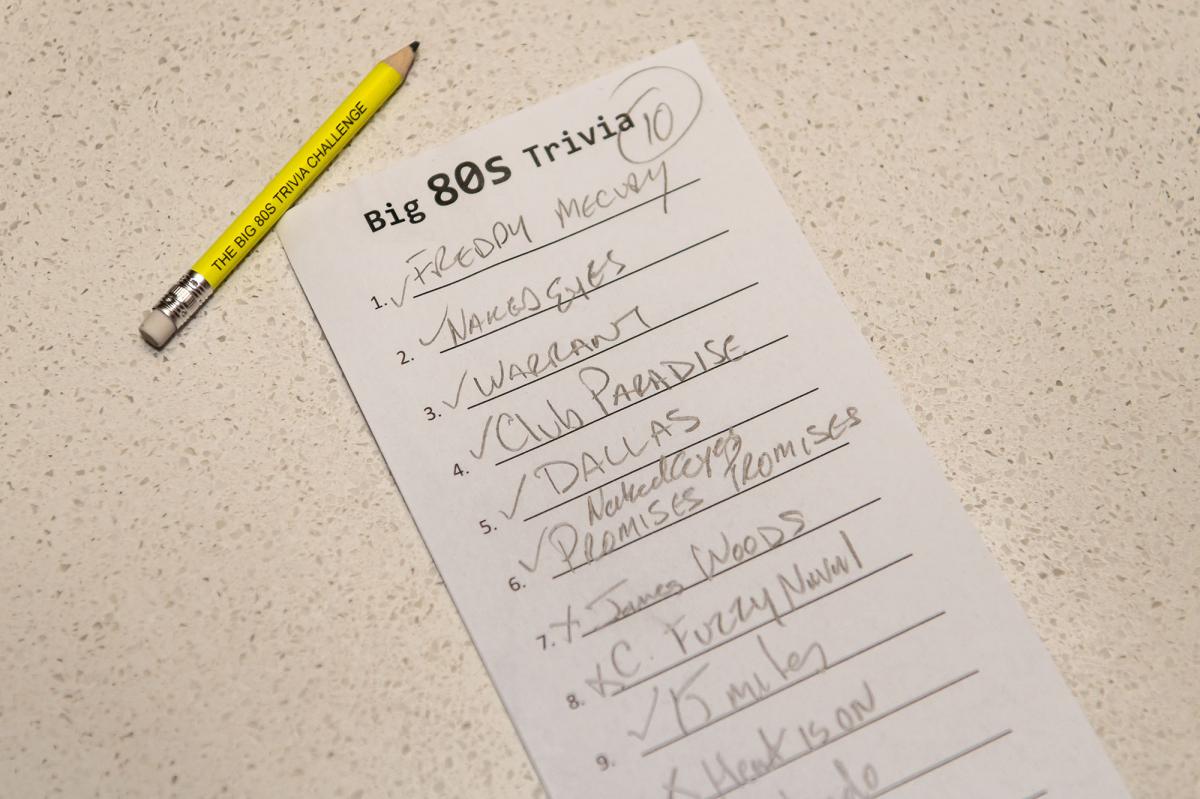 THE BIG 80S TRIVIA CHALLENGE
Big 80s Trivia
10
1. ✓ FREDDY MECURY
2. ✓ NAKED EYES
3. ✓ WARRANT
4. ✓ Club PARADISE
5. ✓ DALLAS
Naked Eyes
6. ✓ PROMISES PROMISES
7. X James WOODS
8. X C. FUZZY Navel
9. ✓ 15 miles
X Hank IS ON